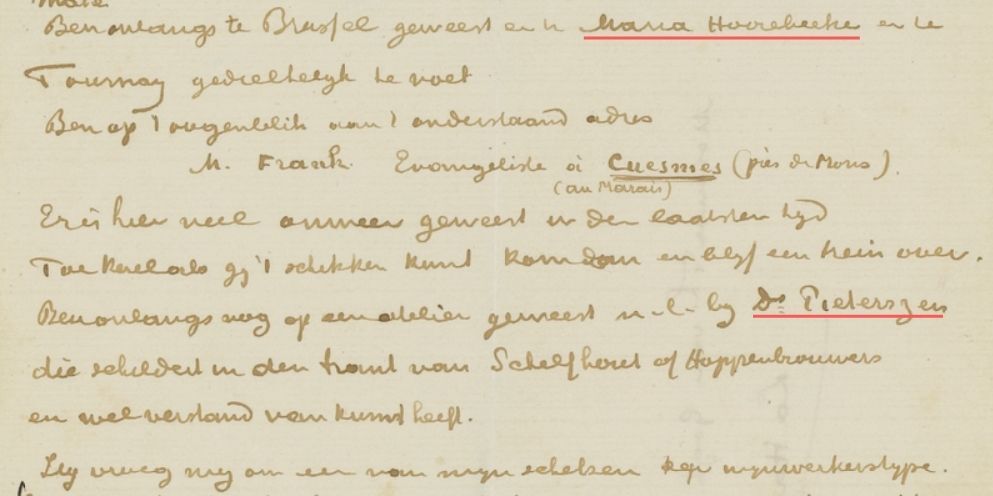 Ben onlangs te Brussel geweest en te Maria Hoorebeeke en te
Tournay gedeeltelijk te voet
Ben op 't oogenblik aan 't onderstaand adres
M. Frank. Evangeliste à Cuesmes (près de Mons).
(au Marais)
Er is hier veel onweer geweest in den laatsten tijd
Toe kerel als gij 't schikken kunt kom dan en blijf een trein over.
Ben onlangs nog op een atelier geweest n.l. bij Ds Pieterszen
die schildert in den trant van Schelfhout of Hoppenbrouwers
en wel verstand van kunst heeft.
Hij vroeg mij om een van mijn schetsen mijnwerkerstype.